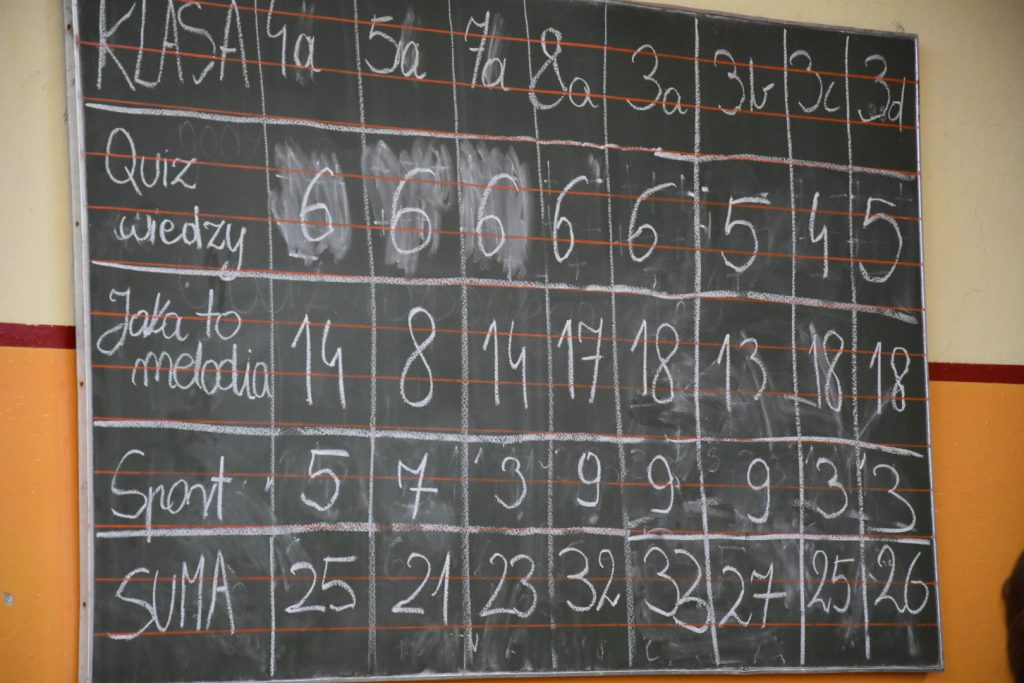 KLASA 4a 5a 7a 8a 3a 3b 3c 3d
Quiz wiedzy 6 6 6 6 6 5 4 5
Jaka to melodia 14 8 14 17 18 13 18 18
Sport 5 7 3 9 9 9 3 3
SUMA 25 21 23 32 33 27 25 26